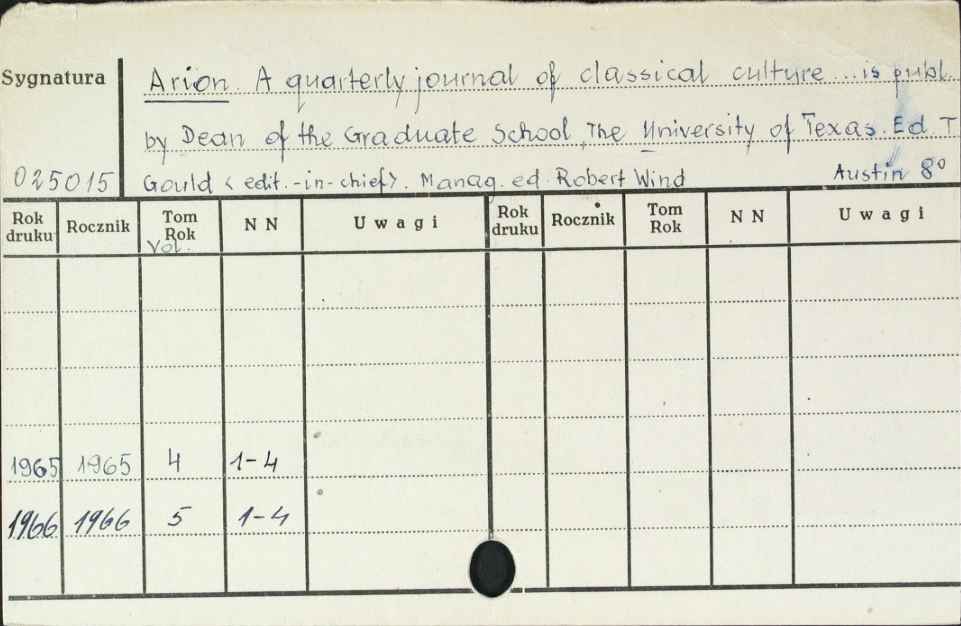 Sygnatura
Arion. A quarterly journal of classical culture ... is publ.
by Dean of the Graduate School, The University of Texas. Ed. T.
025015 Gould <edit.-in-chief>. Manag. ed. Robert Wind Austin 8°
Rok druku Rocznik Tom Rok Vol. N N Uwagi Rok druku Rocznik Tom Rok N N Uwagi
1965 1965 4 1-4
1966 1966 5 1-4